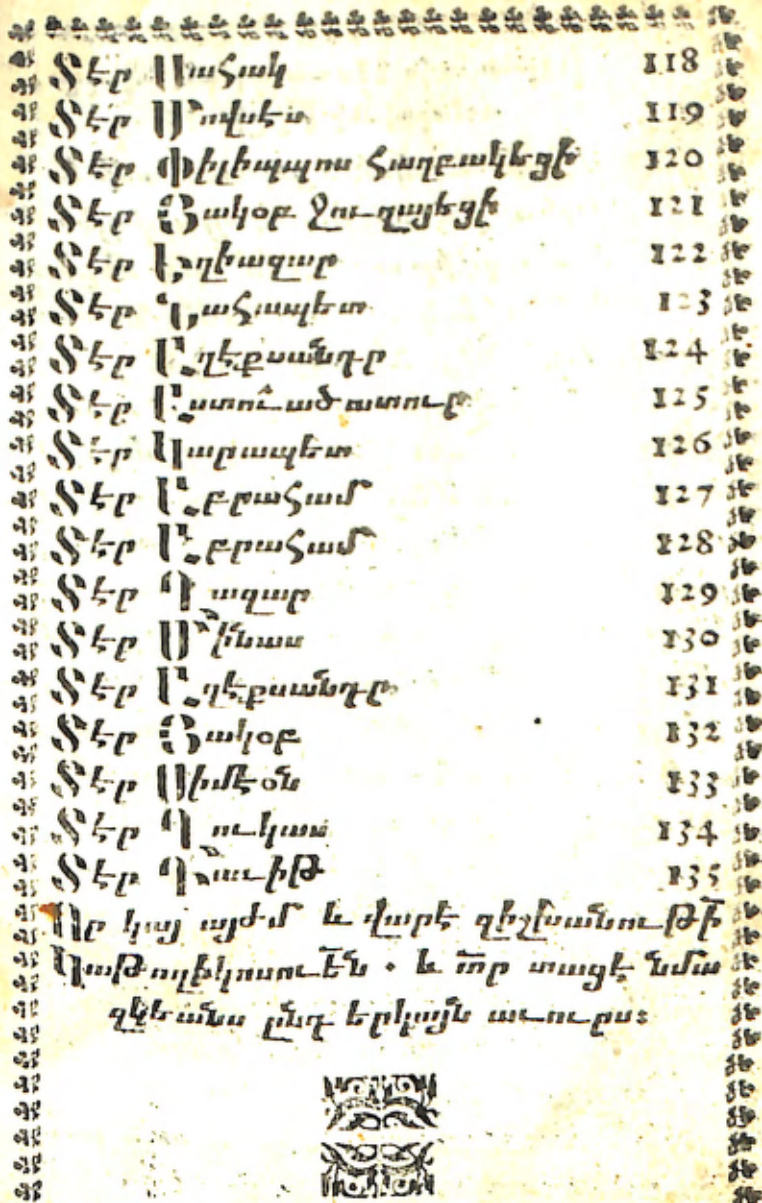 Տէր Սահակ 118
Տէր Մովսէս 119
Տէր Փիլիպպոս Հաղբակեցի 120
Տէր Յակօբ Ջուղայեցի 121
Տէր Եղիազար 122
Տէր Նահապետ 123
Տէր Աղէքսանդր 124
Տէր Աստուածատուր 125
Տէր Կարապետ 126
Տէր Աբրահամ 127
Տէր Աբրահամ 128
Տէր Ղազար 129
Տէր Մինաս 130
Տէր Աղէքսանդր 131
Տէր Յակօբ 132
Տէր Սիմէօն 133
Տէր Ղուկաս 134
Տէր Դաւիթ 135
Որ կայ այժմ և վարէ զիշխանութի՜
Կաթողիկոսուե՜ն . և տ՜ր տացէ նմա
զկեանս ընդ երկայն աւուրս։